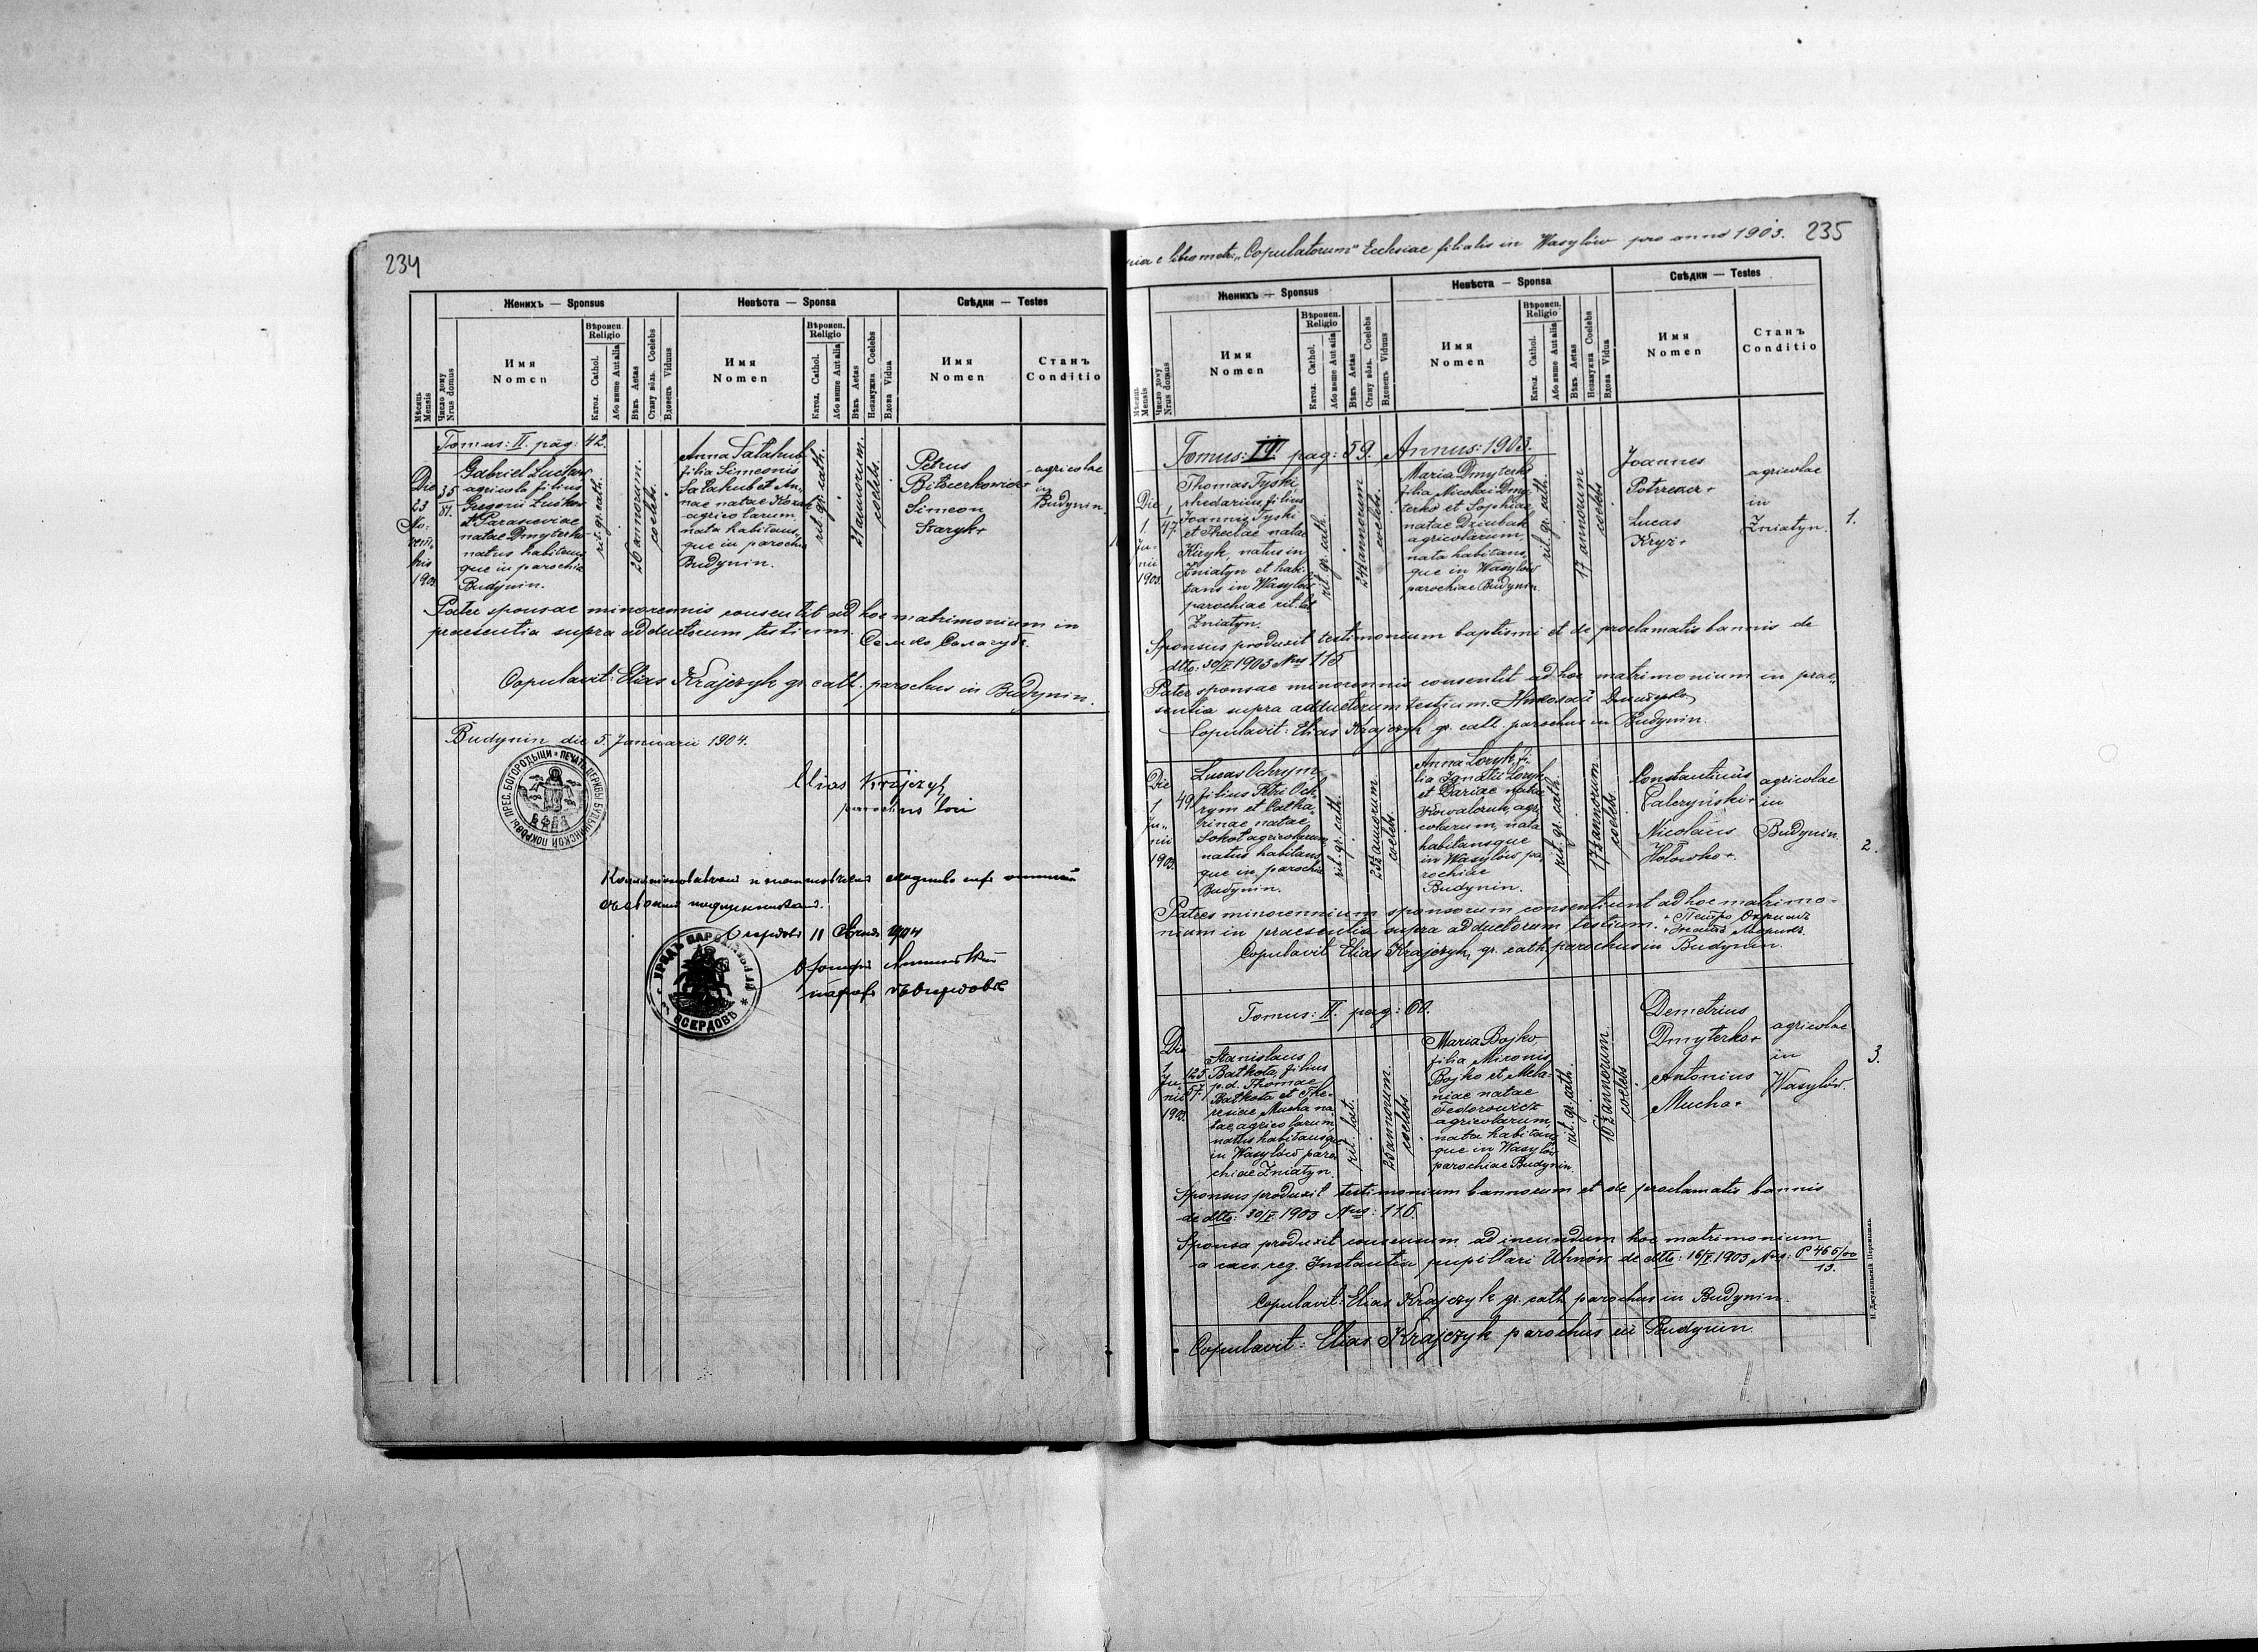 234
Женихъ — Sponsus
Невѣста — Sponsa
Свѣдки — Testes
Мѣсяць Mensis
Число дому Nrus domus
Имя
Nomen
Вѣроисп.
Religio
Катол. Cathol.
Або инше Aut alia
Вѣкъ Aetas
Стану вôль. Coelebs
Вдовець Viduus
Имя
Nomen
Вѣроисп.
Religio
Катол. Cathol.
Або инше Aut alia
Вѣкъ Aetas
Незамужна Coelebs
Вдова Vidua
Имя
Nomen
Станъ
Conditio
Tomus: II. pag: 42.
Die
23
No-
vem-
bris
1903.
35
81.
Gabriel
agricola filius
Gregorii
et Parasceviae
natae Dmyterko
natus habitans
que in parochia
Budynin.
rit. gr. cath.
26 annorum.
coelebs.
Anna Sałahub
filia Simeonis
Sałahub et An-
nae natae
agricolarum
nata habitans
que in parochia
Budynin.
rit. gr. cath.
21 annorum.
coelebs.
Petrus
Simeon
Staryk+
agricolae
in
Budynin.
Pater sponsae minorennis consentit ad hoc matrimonium in
praesentia supra adductorum testium.
Семко Салагубъ.
Copulavit: Elias Krajczyk gr. cath. parochus in Budynin.
Budynin die 5. Januarii 1904.
ПЕЧАТЬ ЦЕРКВЫ БУДЫНИНСКОЙ ПОКРОВЫ ПРЕС. БОГОРОДЫЦИ
Elias Krajczyk
parochus loci
11 1904
УРЯДЪ ПАРОХІАЛЬНЫЙ
ОСЕРДОВѢ
235
Copulatorum" Ecclesiae filialis in Wasylów pro anno 1903.
Женихъ — Sponsus
Невѣста — Sponsa
Свѣдки — Testes
Мѣсяць Mensis
Число дому Nrus domus
Имя
Nomen
Вѣроисп.
Religio
Катол. Cathol.
Або инше Aut alia
Вѣкъ Aetas
Стану вôль. Coelebs
Вдовець Viduus
Имя
Nomen
Вѣроисп.
Religio
Катол. Cathol.
Або инше Aut alia
Вѣкъ Aetas
Незамужна Coelebs
Вдова Vidua
Имя
Nomen
Станъ
Conditio
Tomus: II pag: 59. Annus: 1903.
Die
1
Ju-
nii
1903.
1
47.
Thomas Tyski
rhedarius filius
Joannis Tyski
et Theclae natae
Kizyk, natus in
Żniatyn et habi-
tans in Wasylów
parochiae rit. lat.
Żniatyn.
rit. gr. cath.
24 annorum
coelebs.
Maria Dmyterko
filia Nicolai Dmy-
terko et Sophiae
natae Dziubak
agricolarum,
nata habitans
que in Wasylów
parochiae Budynin.
rit. gr. cath.
17 annorum
coelebs
Joannes
Lucas
Kryz+
agricolae
in
Żniatyn.
1.
Sponsus produxit testimonium baptismi et de proclamatis bannis de
dtto: 30/V 1903 Nus 115
Pater sponsae minorennis consentit ad hoc matrimonium in prae-
sentia supra adductorum testium. Николай Дмитерко
Copulavit: Elias Krajczyk gr. cath. parochus in Budynin.
Die
1
Ju-
nii
1903.
49.
Lucas Ochrym
filius Petri Och-
rym et Catha-
rinae natae
Sokół agricolarum,
natus habitans
que in parochia
Budynin.
rit. gr. cath.
annorum
coelebs
Anna Loryk fi-
lia Ignatii Loryk
et Dariae natae
Kowaloruk, agri-
colarum, nata
habitansque
in Wasylów pa-
rochiae
Budynin.
rit. gr. cath.
17 annorum
coelebs.
Constantinus
Nicolaus
Hołowko+.
agricolae
in
Budynin.
2.
Patres minorennium sponsorum consentiunt ad hoc matrimo-
nium in praesentia supra adductorum testium.
+ Петро Охримъ
Copulavit Elias Krajczyk, gr. cath. parochus in Budynin.
Tomus: II. pag: 60.
Die
1
Ju-
nii
1903.
125
57.
Stanislaus
Bałkota, filius
p. d. Thomae
Bałkota et The-
resiae Mucha na-
tae, agricolarum,
natus habitansque
in Wasylów paro-
chiae Żniatyn.
rit. lat.
25 annorum.
coelebs.
Maria Bojko,
filia Mironis
Bojko et Mela-
niae natae
Fedorowicz
agricolarum,
nata habitans
que in Wasylów
parochiae Budynin.
rit. gr. cath.
annorum.
coelebs
Demetrius
Dmyterko+
Antonius
Mucha+
agricolae
in
Wasylów.
3.
Sponsus produxit testimonium bannorum et de proclamatis bannis
de dtto: 30/V 1903 Nus: 116.
Sponsa produxit consensum ad ineundum hoc matrimonium
a caes. reg. Instantia pupillari Uhnów de dtto: 16/V 1903 Nus: P 466/00
13.
Copulavit: Elias Krajczyk gr. cath. parochus in Budynin.
Copulavit: Elias Krajczyk parochus in Budynin.
Н. Джулыньскій Перемышль.